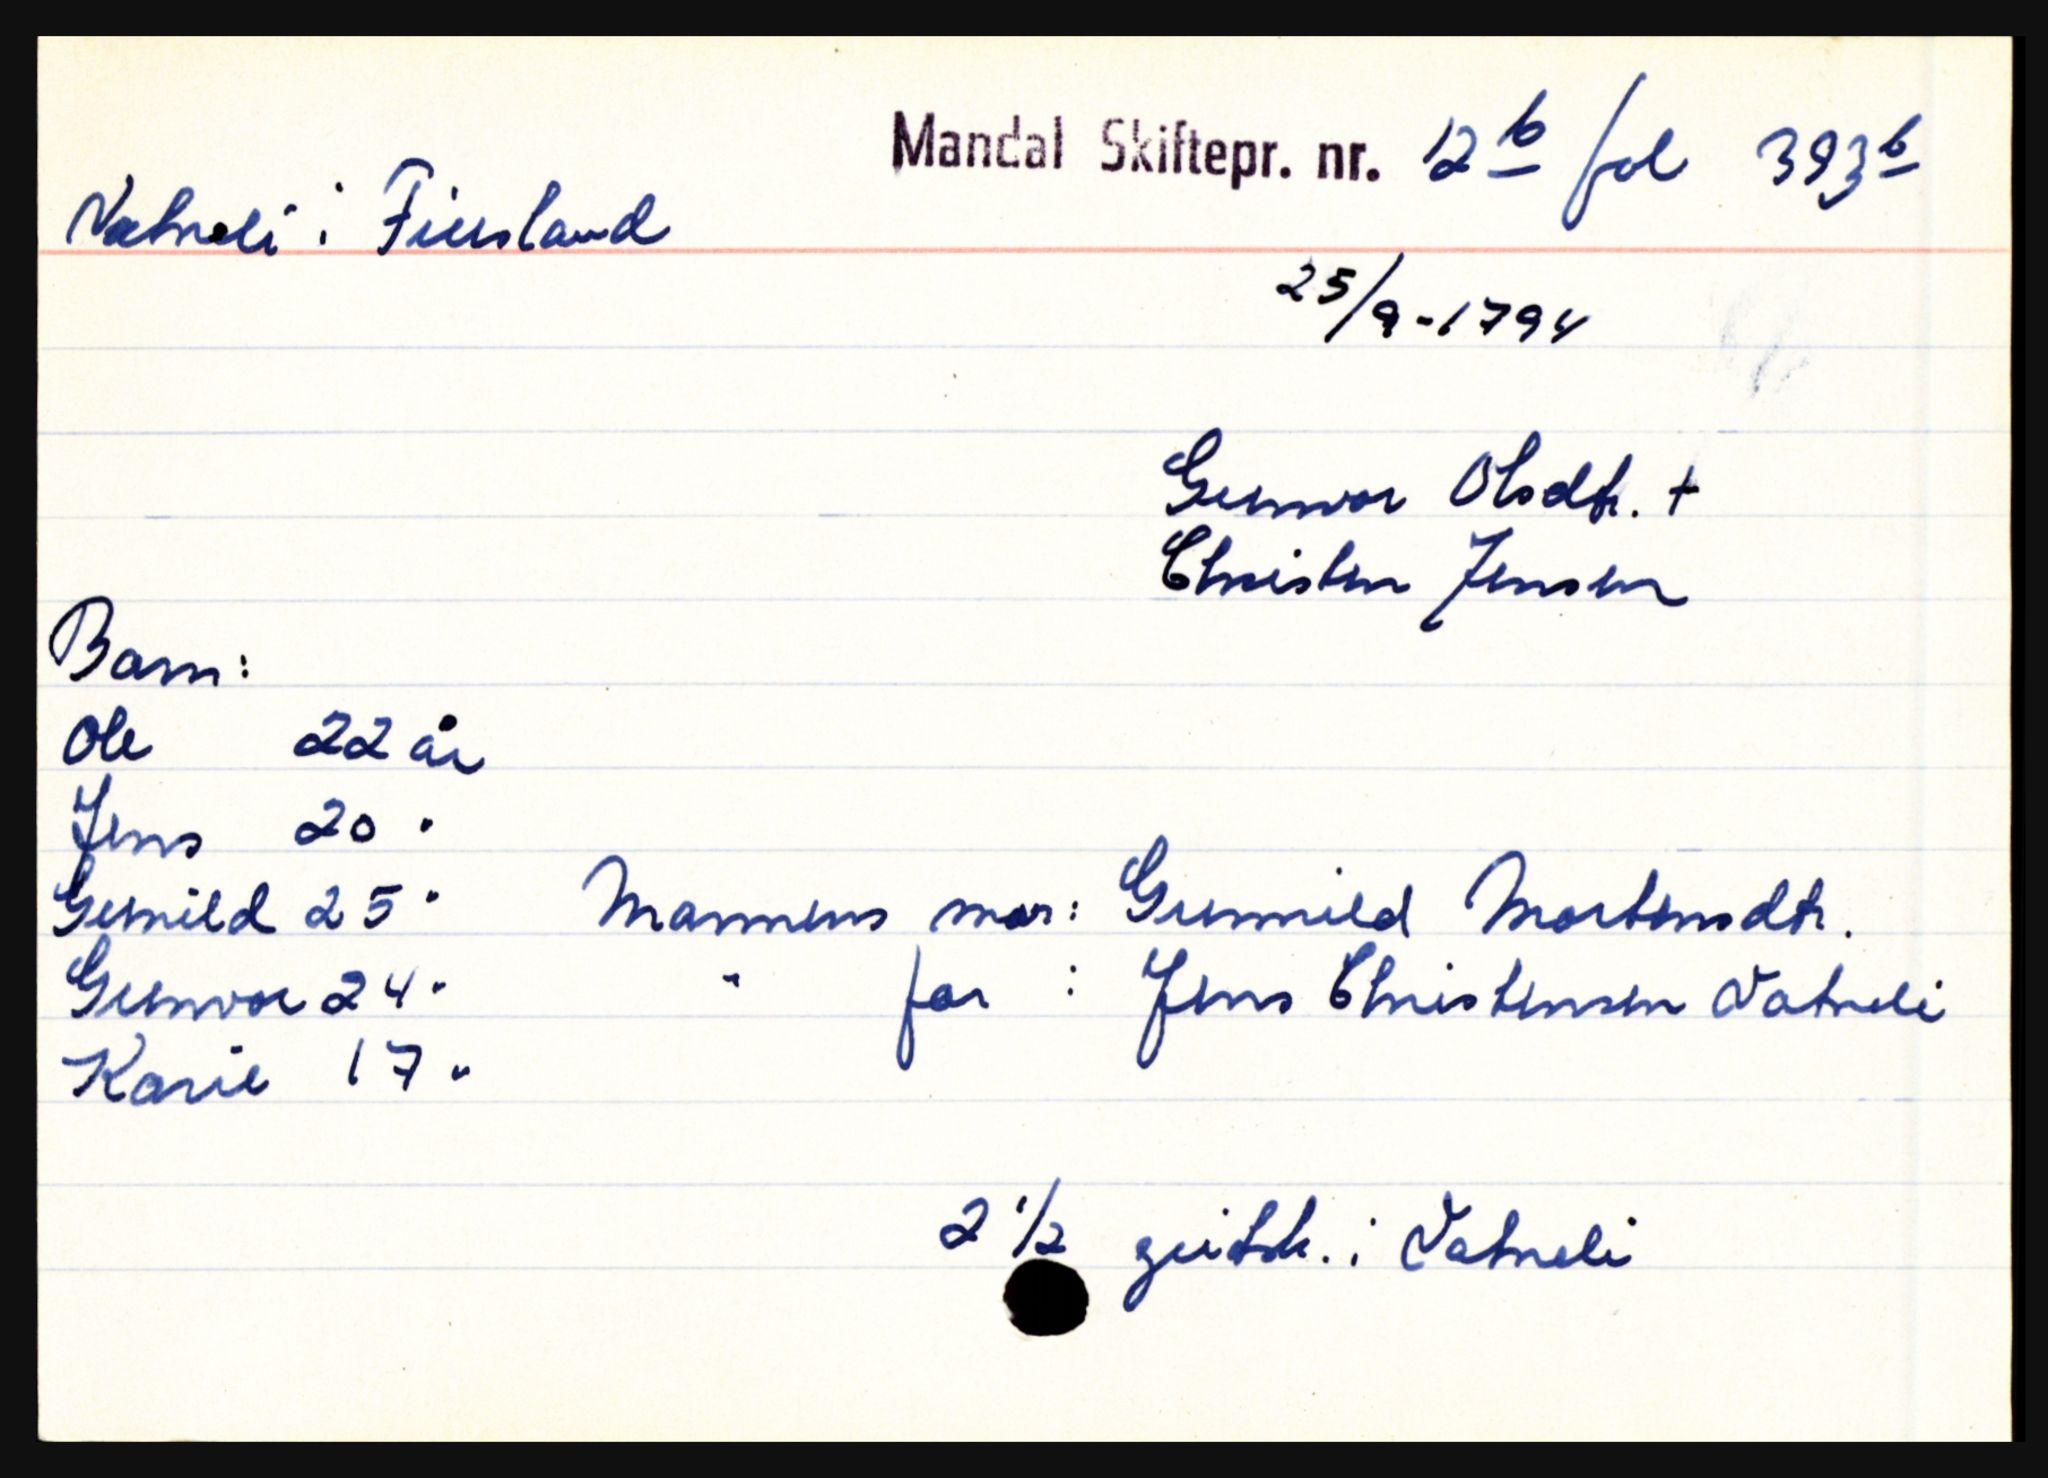 Mandal Skiftepr. nr. 12 b fol 393 b
Vatneli i Finsland
25/9-1794
Gunvor Olsdtr. +
Christen Jensen
Barn:
Ole 22 år
Jens 20 "
Gunild 25 " Mannens mor: Gunnild Mortensdtr.
Gunvor 24 " " far : Jens Christensen Vatneli
Karie 17 "
2 1/2 geitsk. i Vatneli